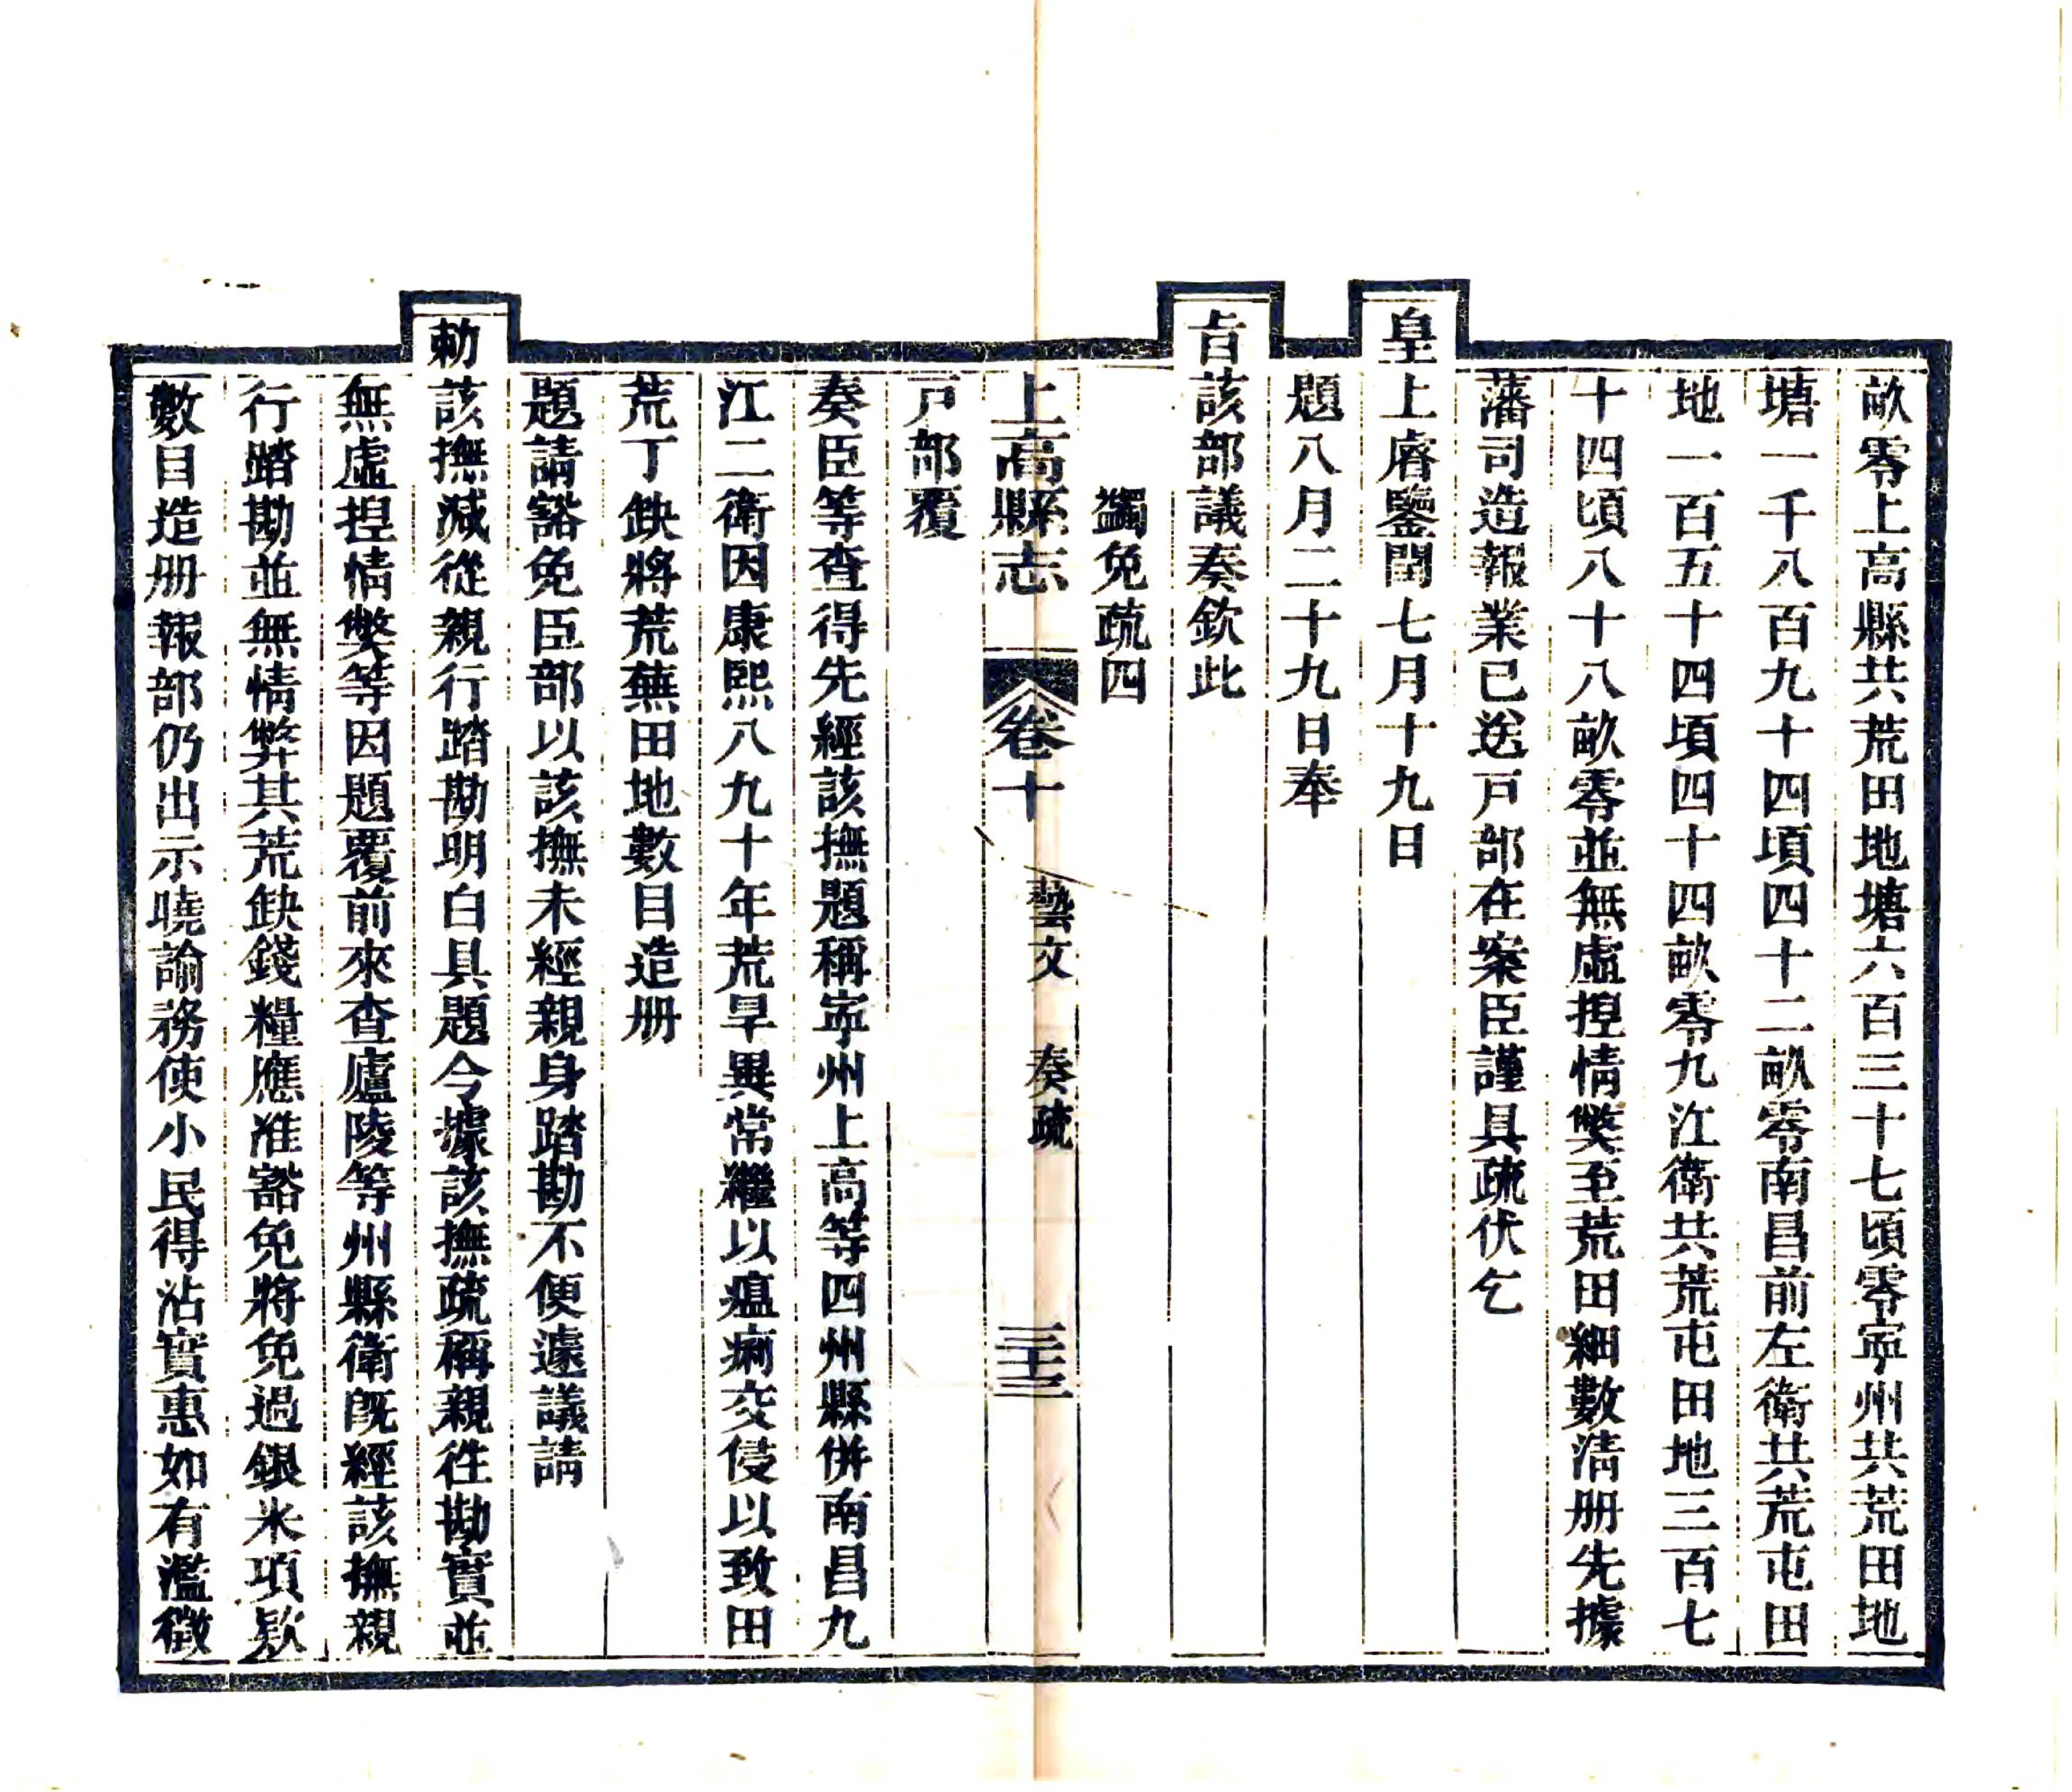 畝零上高縣共荒田地塘六百三十七頃零寧州共荒田地
塘一千八百九十四頃四十二畝零南昌前左衛共荒屯田
地一百五十四頃四十四畝零九江衛共荒屯田地三百七
十四頃八十八畝零並無虛捏情獘至荒田細數清册先據
藩司造報業已送戸部在案臣謹具疏伏乞
皇上睿鑒聞七月十九日
題八月二十九日奉
旨該部議奏欽此
蠲免疏四
上高縣志 卷十 藝文 奏疏 三十三
戸部覆
奏臣等查得先經該撫題稱寧州上高等四州縣併南昌九
江二衛因康熙八九十年荒旱異常繼以瘟痢交侵以致田
荒丁缺將荒蕪田地數目造册
題請豁免臣部以該撫未經親身踏勘不便遽議請
勅該撫減從親行踏勘明白具題今據該撫疏稱親徃勘實並
無虛捏情獘等因題覆前來查廬陵等州縣衛旣經該撫親
行踏勘並無情弊其荒缺錢糧應准豁免將免過銀米項欵
數目造册報部仍出示曉諭務使小民得沾實惠如有濫徵